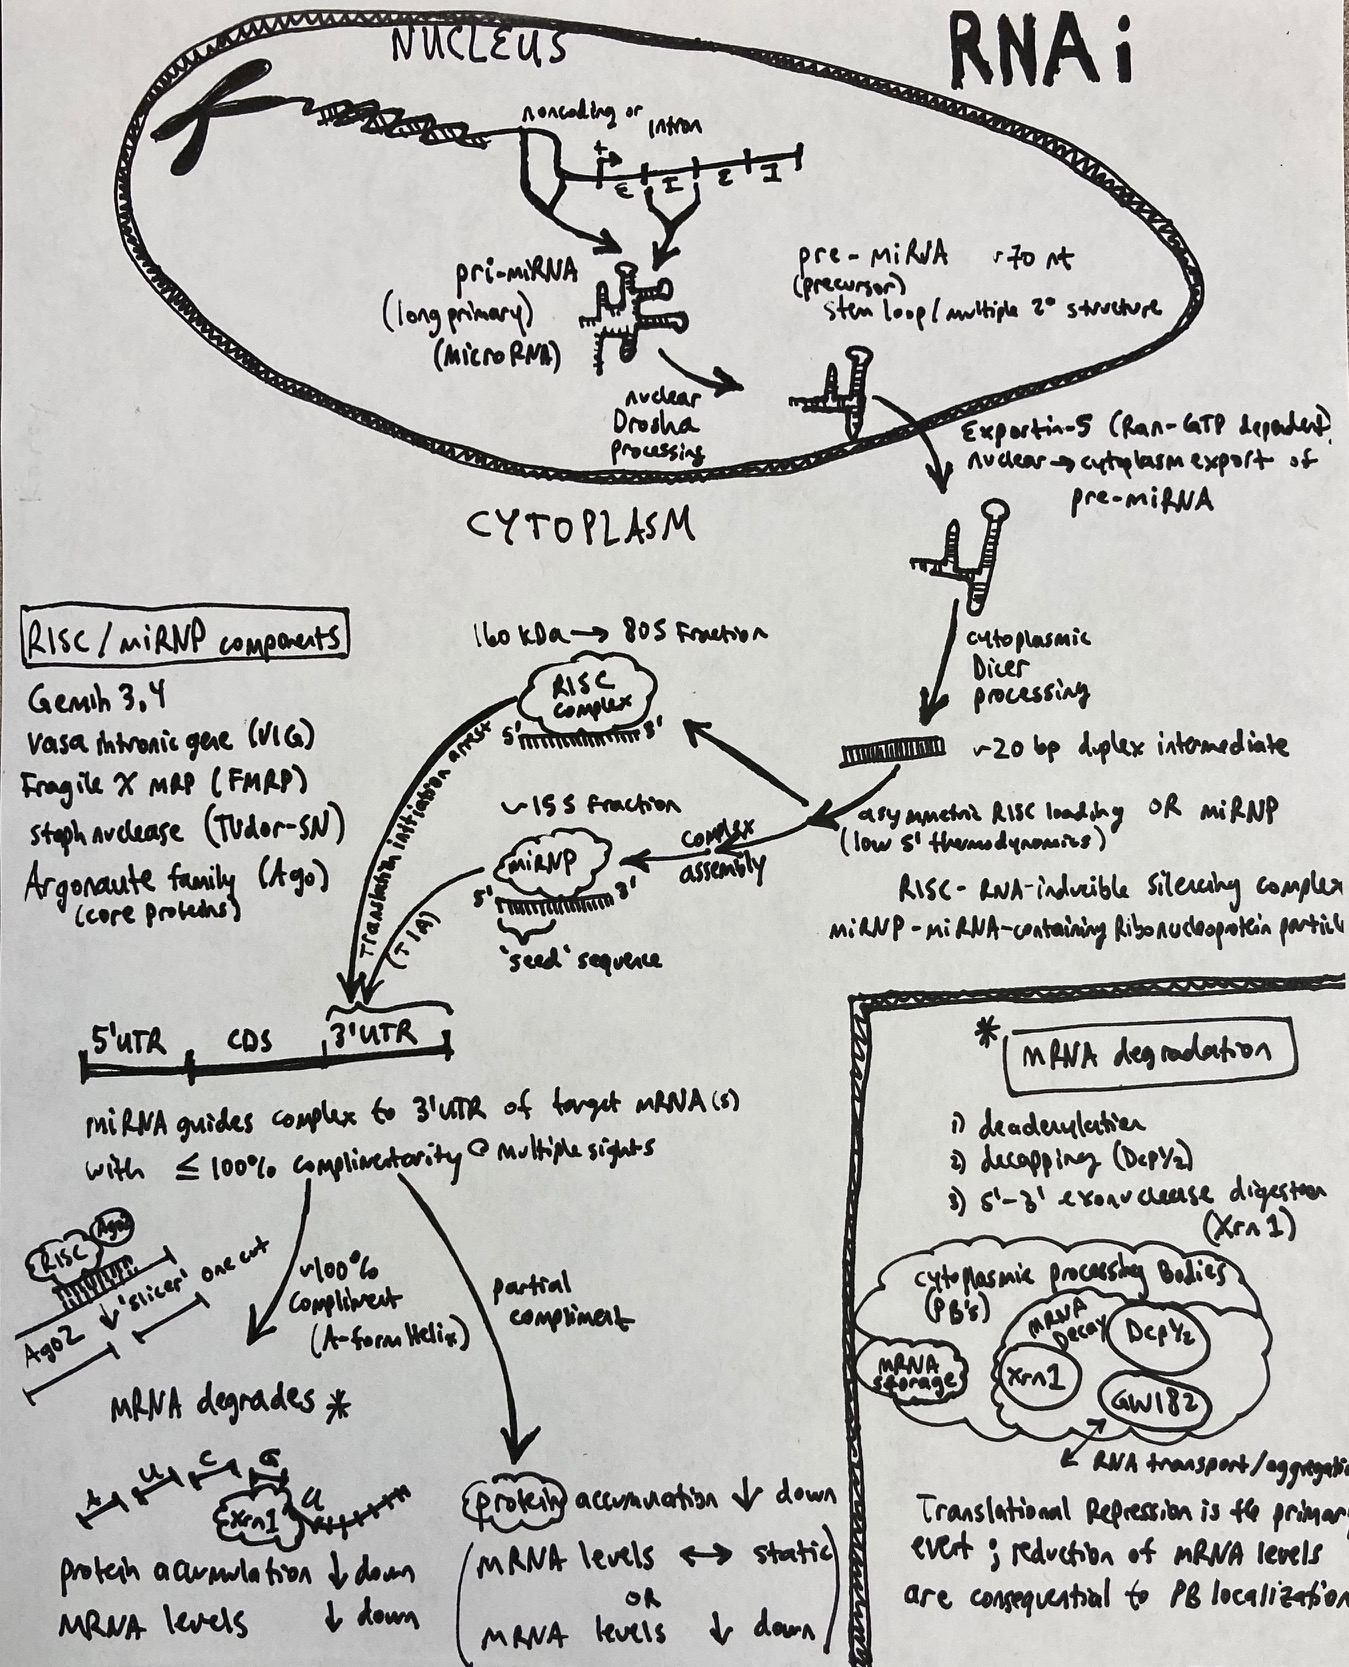 NUCLEUS
RNAi
noncoding or
intron
+
E I E I
pri-miRNA
(long primary)
(microRNA)
pre-miRNA ~70 nt
(precursor)
stem loop/multiple 2° structure
nuclear
Drosha
processing
Exportin-5 (Ran-GTP dependent)
nuclear → cytoplasm export of
pre-miRNA
CYTOPLASM
cytoplasmic
Dicer
processing
~20 bp duplex intermediate
asymmetric RISC loading OR miRNP
(low 5' thermodynamics)
RISC - RNA-inducible Silencing complex
miRNP - miRNA-containing Ribonucleoprotein particl
complex
assembly
160 kDa → 80S Fraction
RISC
complex
5' 3'
~15S Fraction
miRNP
5' 3'
'seed' sequence
Translation initiation arrest
(TIA)
RISC/miRNP components
Gemin 3,4
Vasa intronic gene (VIG)
Fragile X MRP (FMRP)
staph nuclease (Tudor-SN)
Argonaute family (Ago)
(core proteins)
5'UTR CDS 3'UTR
miRNA guides complex to 3'UTR of target mRNA(s)
with ≤ 100% complimentarity @ multiple sights
RISC
Ago2
'slicer' one cut
Ago2
~100%
compliment
(A-form Helix)
partial
compliment
mRNA degrades *
A U C G
Xrn1
protein accumulation ↓ down
mRNA levels ↓ down
protein accumulation ↓ down
(mRNA levels ↔ static
OR
mRNA levels ↓ down)
* mRNA degradation
1) deadenylation
2) decapping (Dcp1/2)
3) 5'-3' exonuclease digestion
(Xrn1)
cytoplasmic processing Bodies
(PB's)
mRNA
Decay
Dcp1/2
mRNA
storage
Xrn1
GW182
RNA transport/aggregatio
Translational Repression is the primary
event; reduction of mRNA levels
are consequential to PB localization